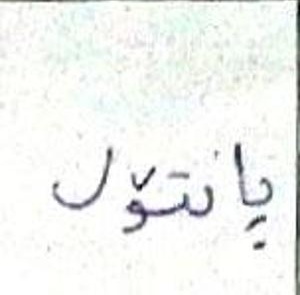 پانتۆل